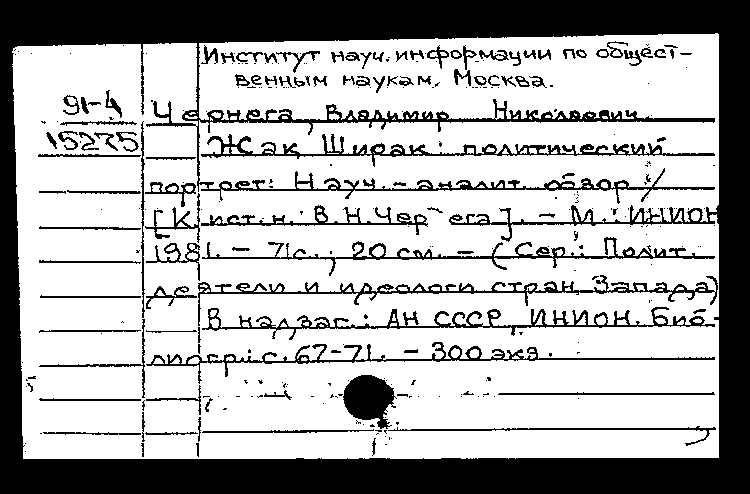 Институт науч. информации по общест-
венным наукам. Москва.
91-4
15275
Чернега, Владимир Николаевич.
Жак Ширак: политический
портрет: Науч.-аналит. обзор /
[К. ист. н.: В. Н. Чернега]. - М.: ИНИОН
1981. - 71с.; 20 см. - (Сер.: Полит.
деятели и идеологи стран Запада)
В надзаг.: АН СССР, ИНИОН. Биб-
лиогр.: с. 67-71. - 300 экз.